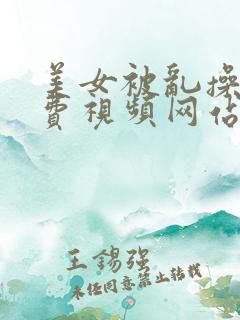 美女被亂操
費視頻网佔
王錫强
未经同意禁止转载